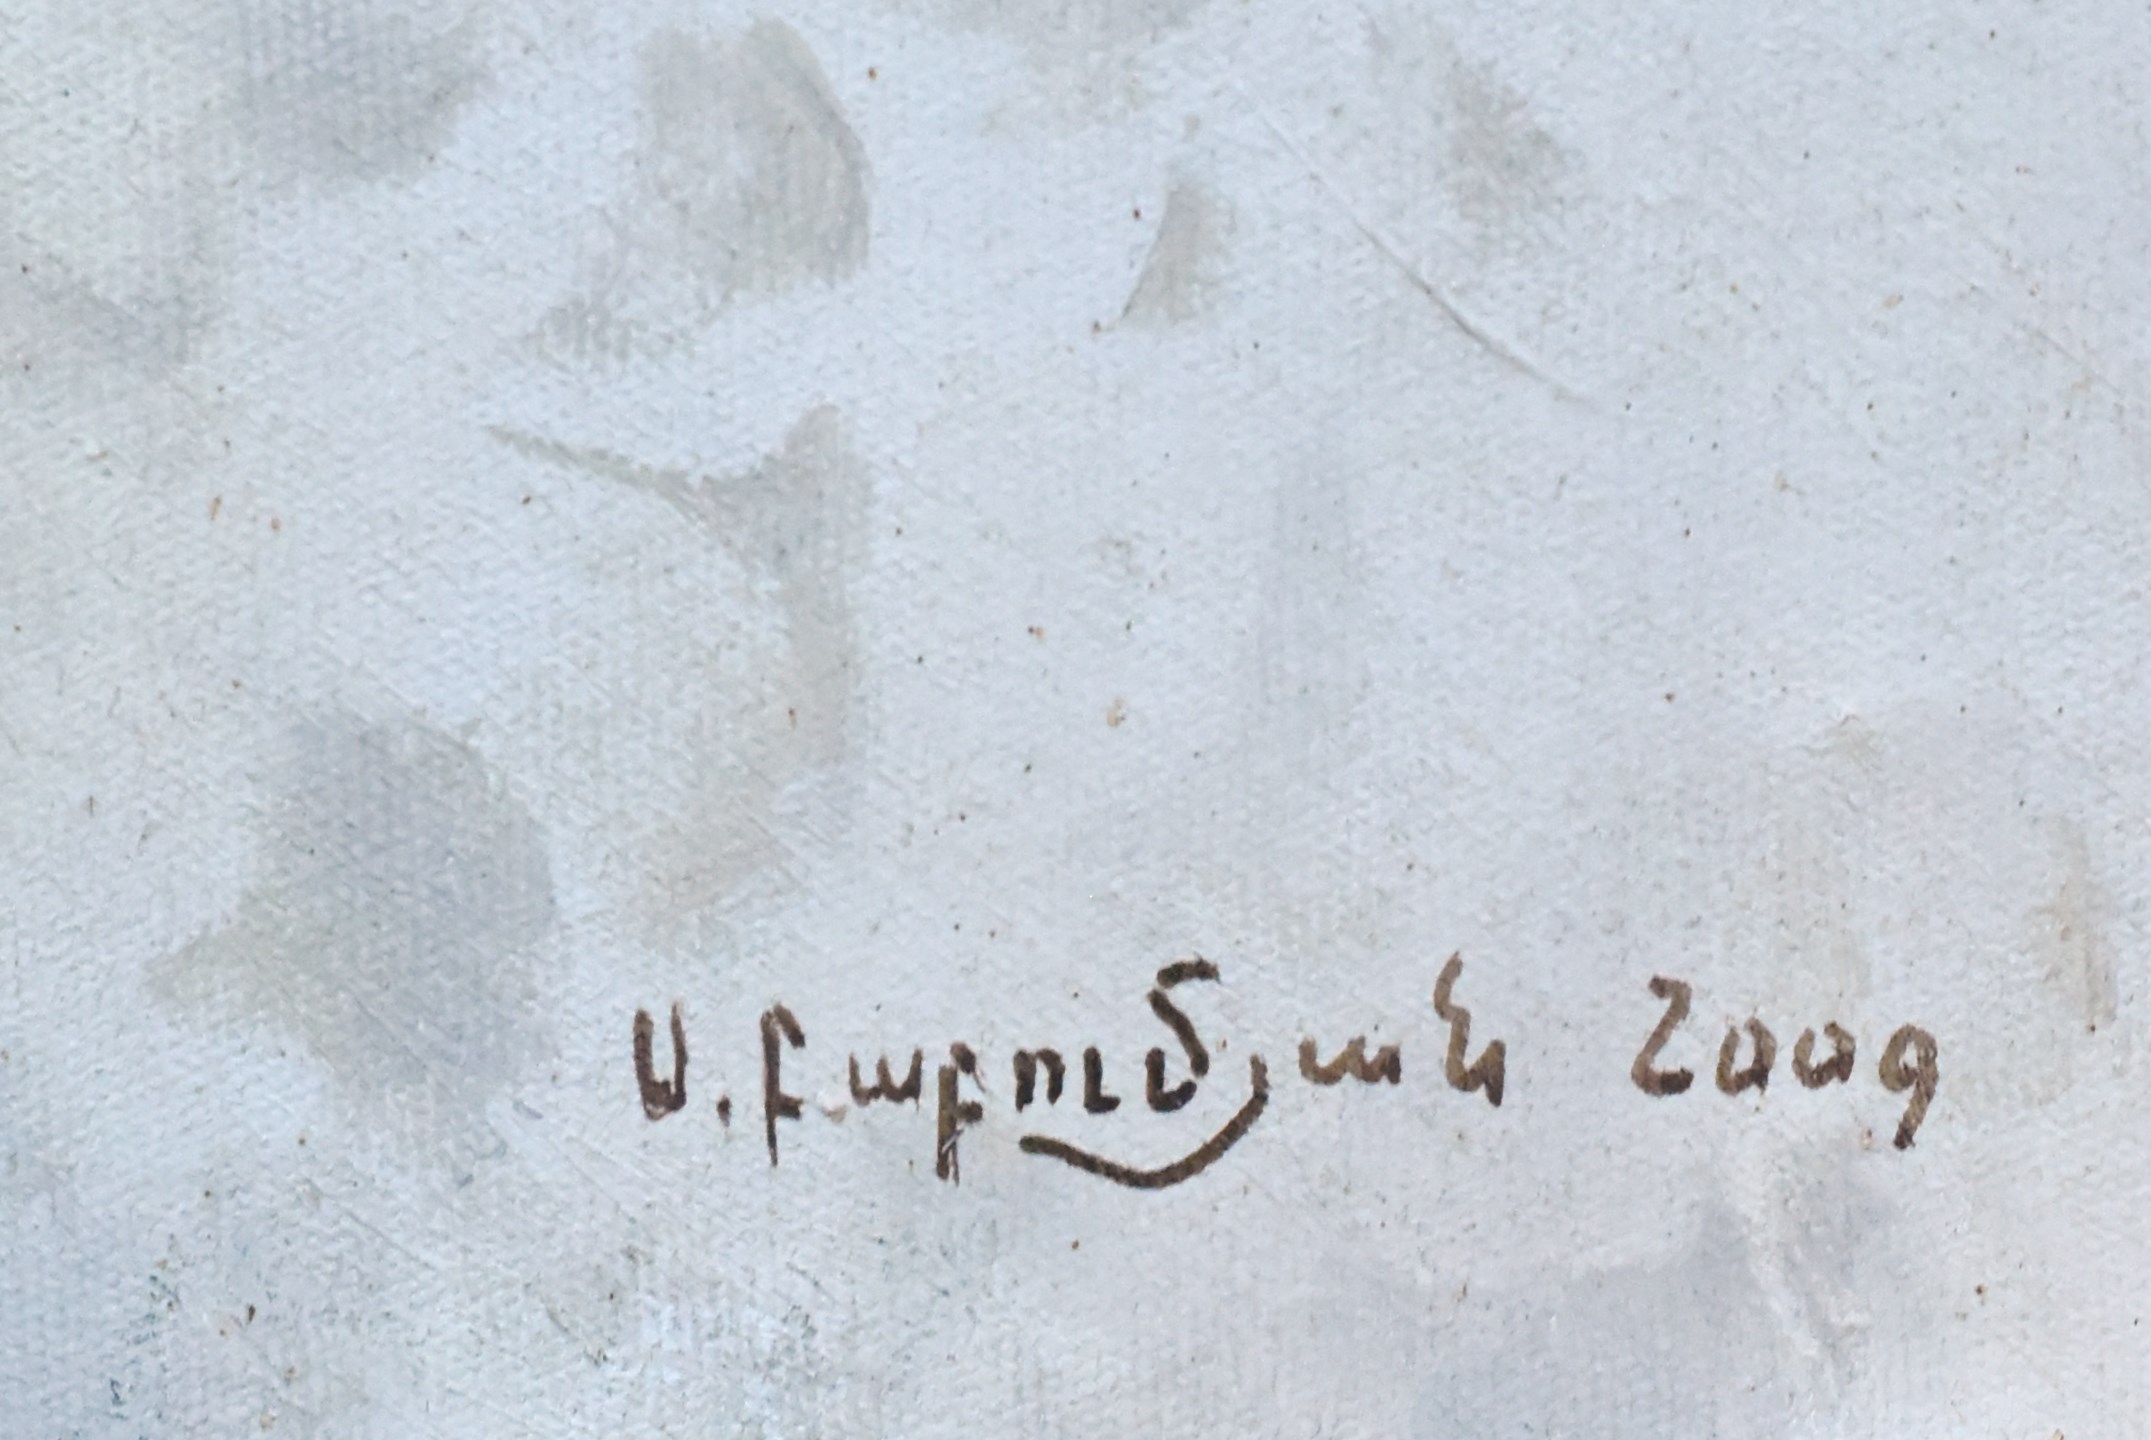 Ս. բաբումյան 2009